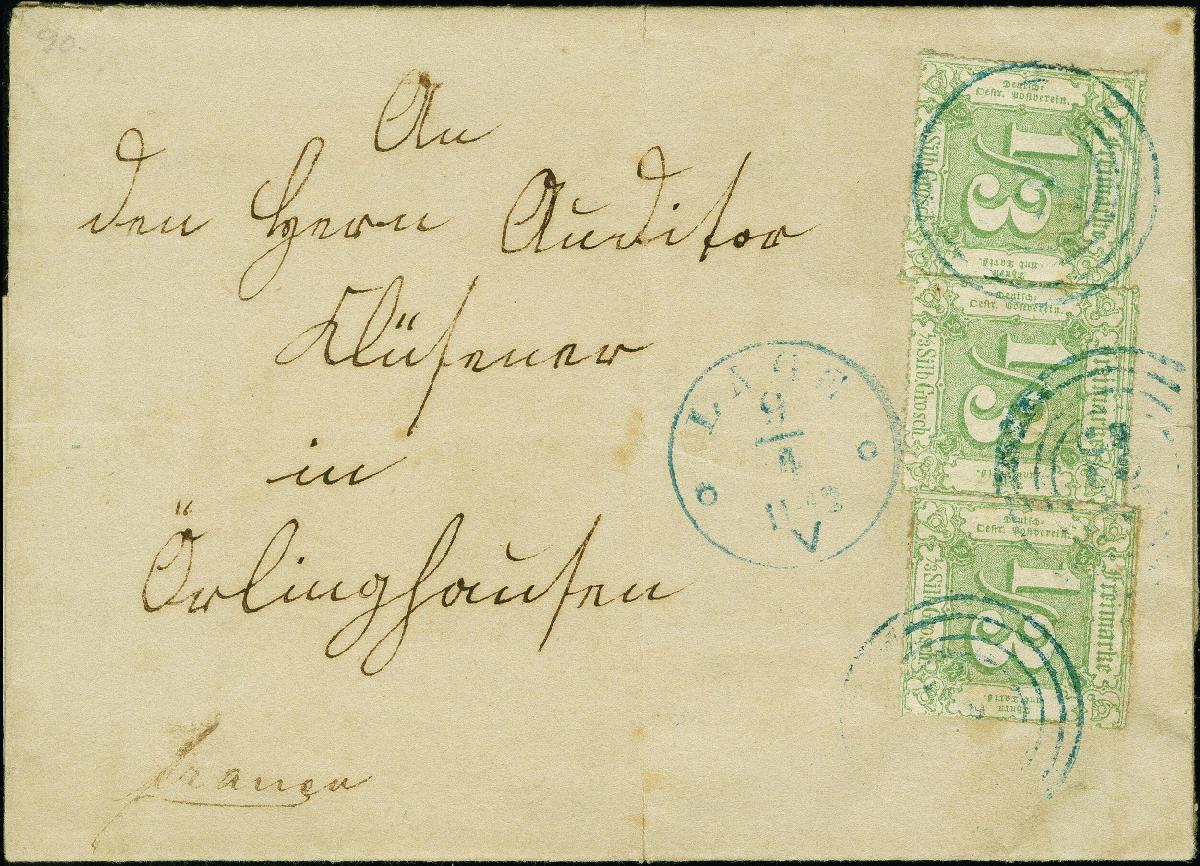 90.-
An
den Herrn Auditor
Klüsener
in
Örlinghausen
franco
LAGE
9
4
11-12
V
Deutsch-
Oestr. Postverein.
Freimarke
1/3
1/3 Silb Grosch
Thurn
und Taxis.
Deutsch-
Oestr. Postverein.
Freimarke
1/3
1/3 Silb Grosch
Deutsch-
Oestr. Postverein.
Freimarke
1/3
1/3 Silb Grosch
Thurn
und Taxis.